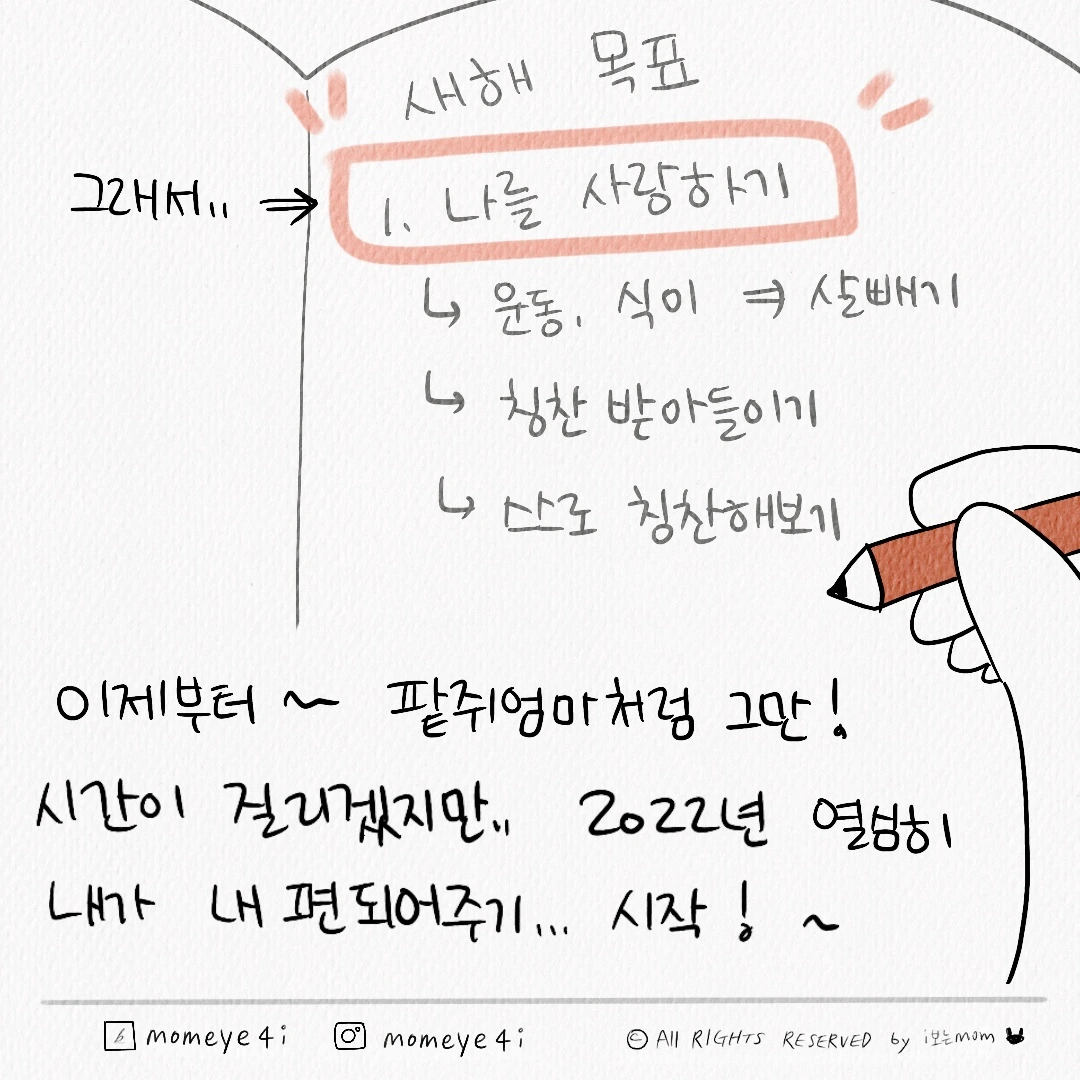 새해 목표
그래서.. ⇒ 1. 나를 사랑하기
↳ 운동, 식이 ⇒ 살빼기
↳ 칭찬 받아들이기
↳ 스스로 칭찬해보기
이제부터 ~ 팥쥐엄마처럼 그만!
시간이 걸리겠지만.. 2022년 열심히
내가 내 편 되어주기... 시작! ~
b momeye4i momeye4i © All RIGHTS RESERVED by i보는mom